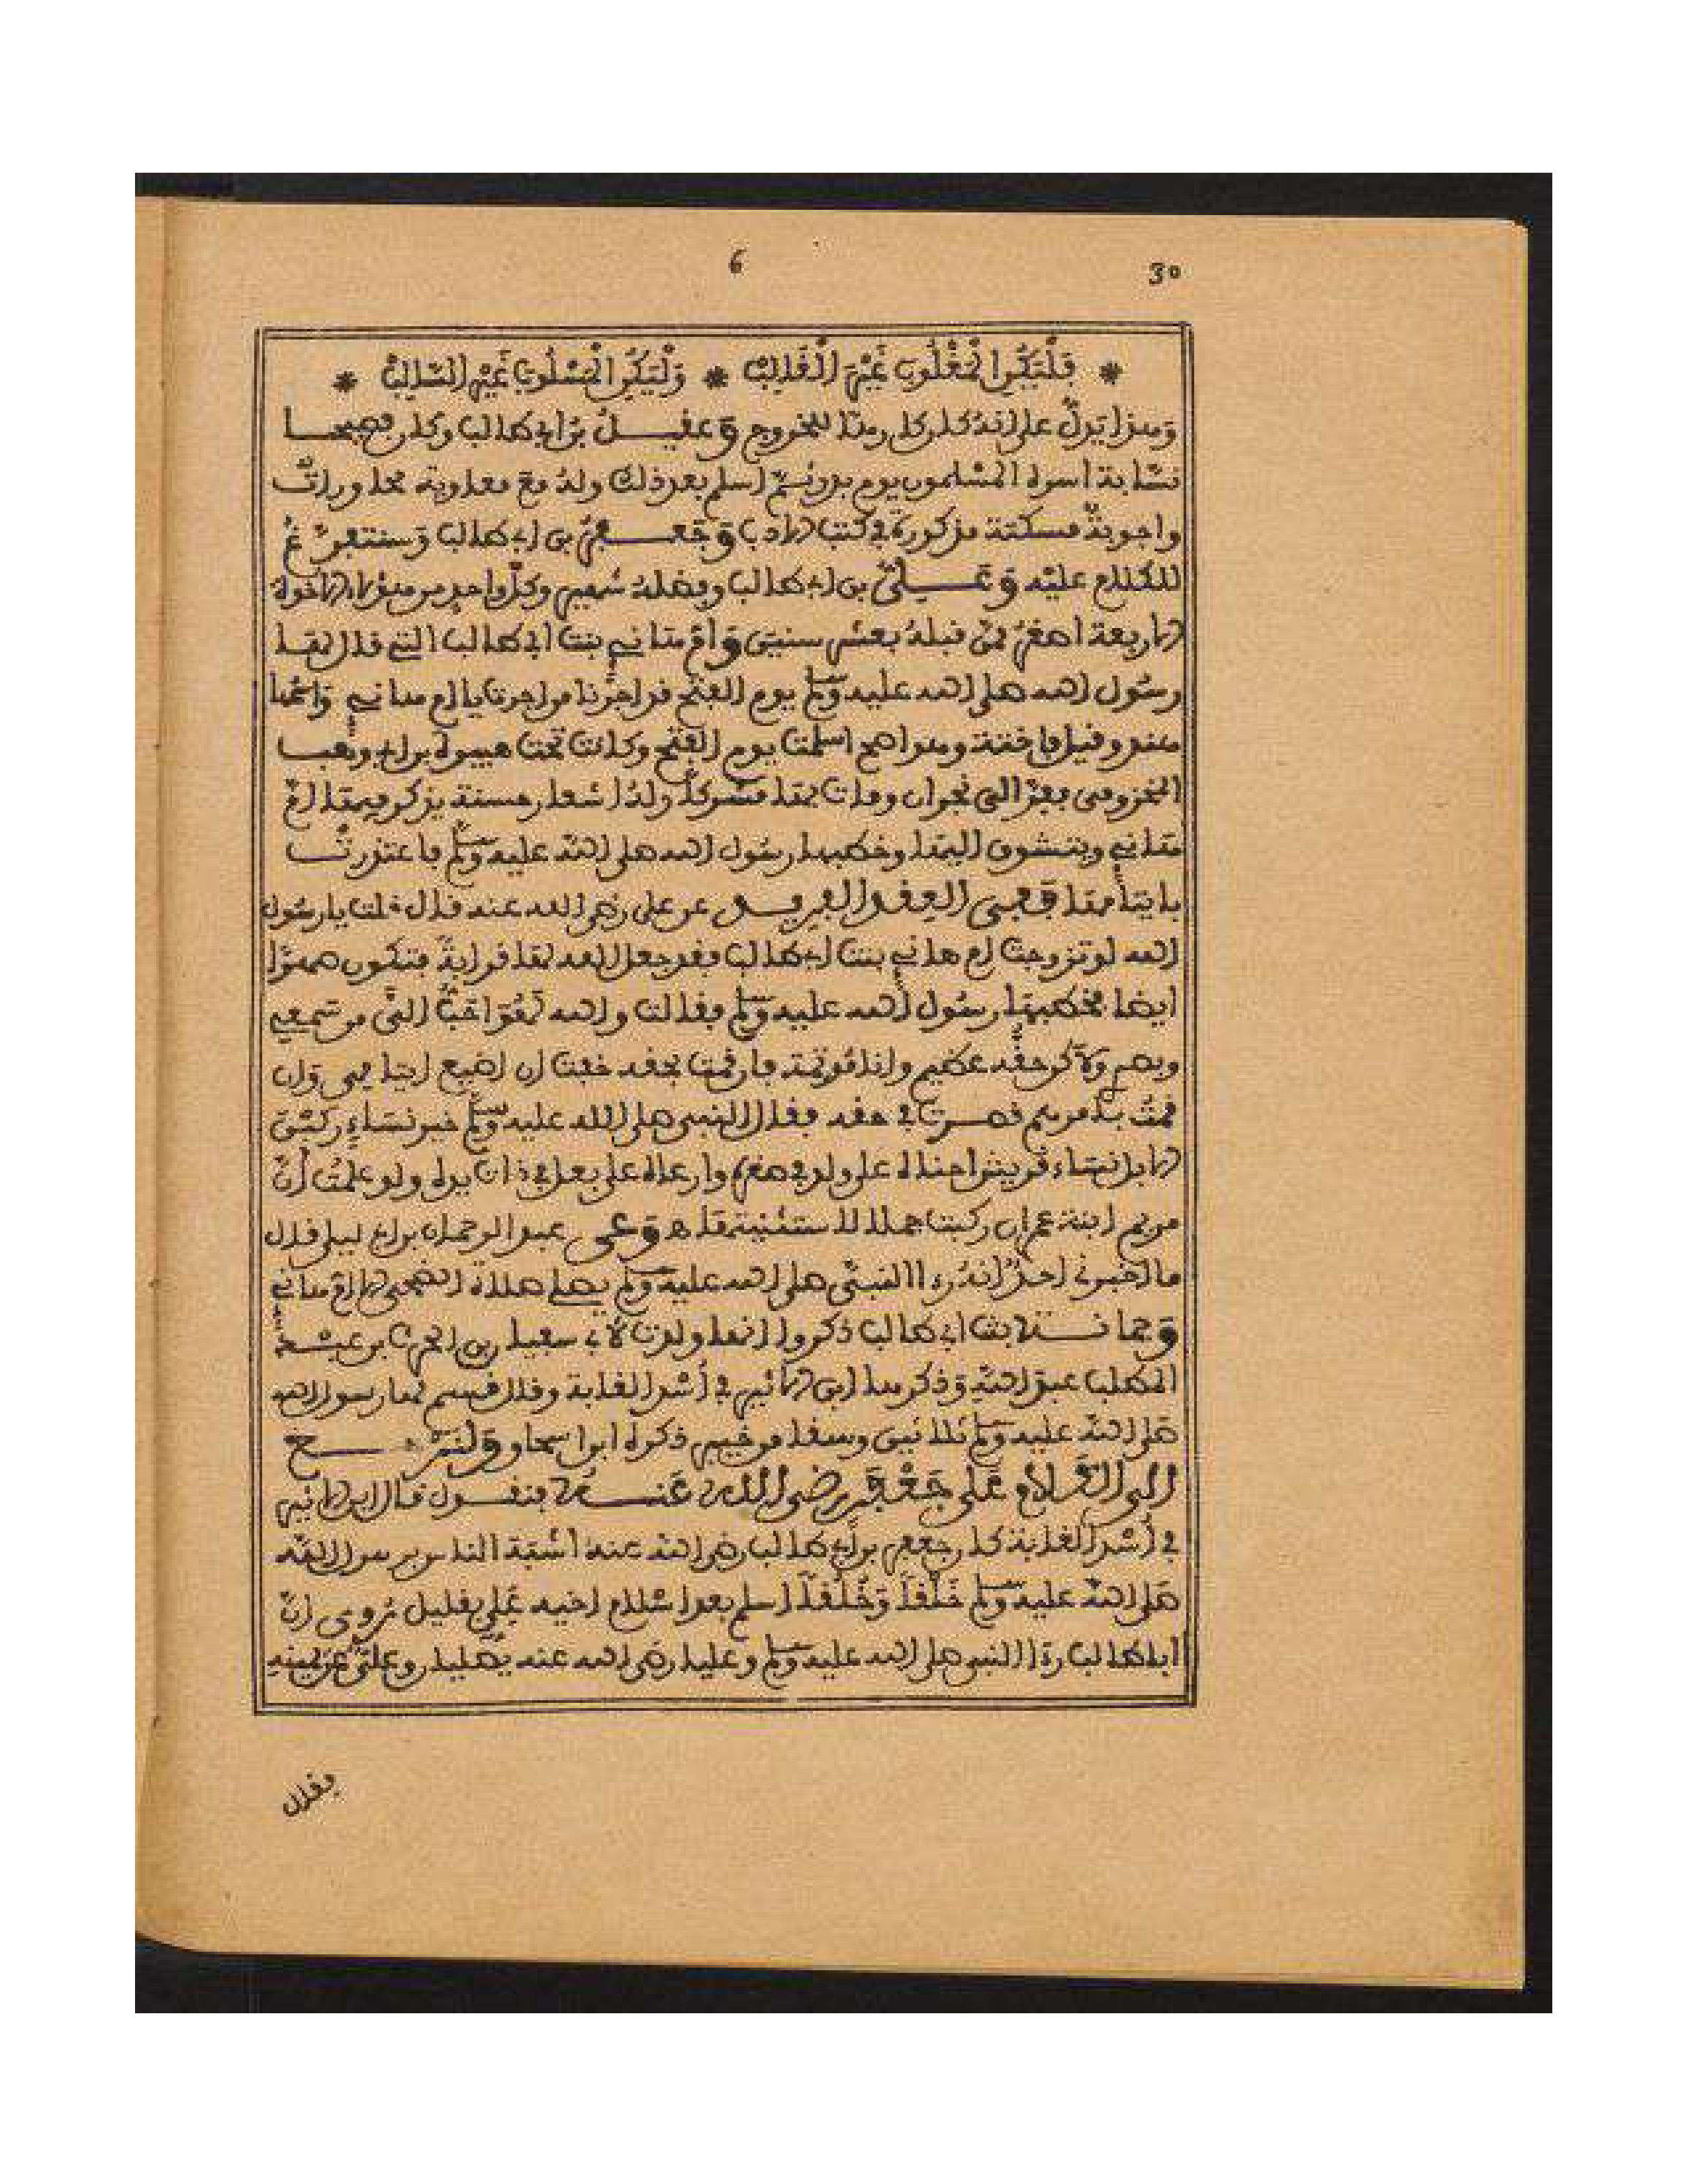 30 6
* فَلْيَكُنِ الْمَغْلُوبَ غَيْرَ الْغَالِبْ * وَلْيَكُنِ الْمَسْلُوبَ غَيْرَ السَّالِبْ *
وهذا يدلّ على انه كان كارها للخروج وَعقيــلُ بن ابي طالب وكان فصيحا
نسّابة اسره المسلمون يوم بدر ثم اسلم بعد ذلك وله مع معاوية محاوراتٌ
واجوبةٌ مسكتة مذكورة في كتب الادب وَجعــفرُ بن ابي طالب وسنتفرّغ
للكلام عليه وَعَــلِيّ بن ابي طالب وفضله شهير وكلّ واحد من هؤلاء الاخوة
الاربعة اصغرُ ممّن قبلهُ بعشر سنين وَامّ هانئ بنت ابي طالب التي قال لها
رسُول الله صلى الله عليه وسلم يوم الفتح قد اجرنا من اجرت يا ام هانئ وَاسْمُها
هند وقيل فاختة وهو اصح اسلمت يوم الفتح وكانت تحت هبيرة بن ابي وهب
المخزومي ففرّ الى نجران ومات بها مشركًا ولهُ اشعار حسنة يذكر فيها امّ
هانئ ويتشوق اليها وخطبها رسُول الله صلى الله عليه وسلم فاعتذرتْ
بايتامها فَفِي العقد الفريــد عن علي رضي الله عنه قال قلت يا رسُول
الله لو تزوجت ام هانئ بنت ابي طالب فقد جعل الله لها قرابةً فتكون صهرًا
ايضا فخطبها رسُول الله عليه وسلم فقالت والله لَهُوَ احَبُّ اليّ من سمعي
وبصري ولاكن حقُّه عظيم وانا مُوتمة فان قمت بحقه خفت ان اضيع ايتامي وَان
قمتُ بامرهم قصــرت في حقه فقال النبي صلى الله عليه وسلم خير نسَاءٍ ركبْنَ
الابل نسَاء قريش احناه على ولد في صغر وارعاه على بعل في ذات يده ولو علمتُ أنّ
مريم ابنة عمران ركبت جملا لاستثنيتها هـ وَعن عبد الرحمان بن ابي ليلى قال
ما اخبرني احدٌ انهُ رءا النبيّ صلى الله عليه وسلم يصلي صلاة الضحى الا امّ هانئ
وَجمانــة بنت ابي طالب ذكروا انها ولدت لابي سفيان بن الحرث بن عبــد
المطلب عبدَ اللهِ وَذكرها ابن الاثير في أُسْد الغابة وقال قسم لها رسول الله
صَلى اللهُ عليه وسلم ثلاثين وسقا من خيبر ذكره ابن اسحاق وَلنرْجــــع
الى الكَلامِ عَلَى جَعْفَر رضي الله عَنــهُ فنقــول قال ابن الاثير
في أُسْد الغابة كان جعفر بن ابي طالب رضي الله عنه اشبَهَ الناس برسول الله
صَلى اللهُ عليه وسلم خَلْقًا وَخُلُقًا اسلم بعد اسْلام اخيه عَلي بقليل رُوي انّ
ابا طالب رءا النبي صلى الله عليه وسلم وعليا رضي الله عنه يصليان وعليّ عن يمينهِ
فقال